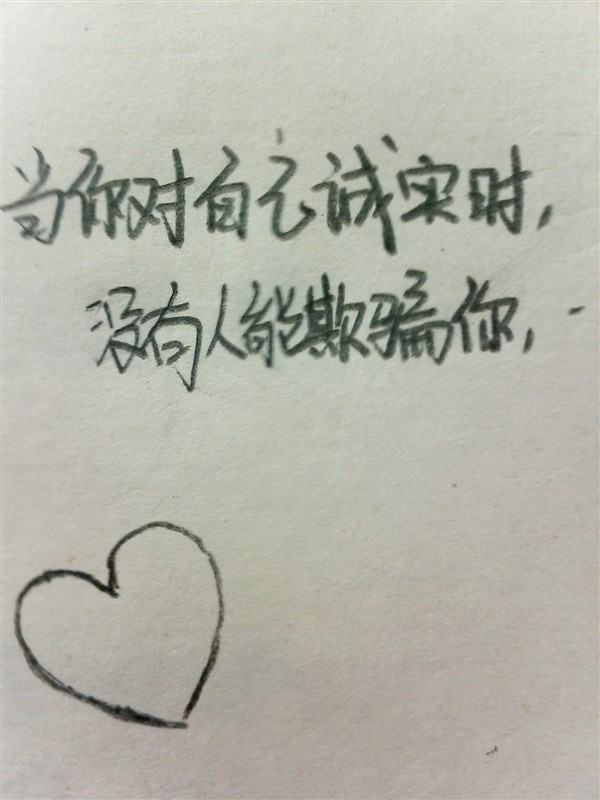 当你对自己诚实时,
没有人能欺骗你,